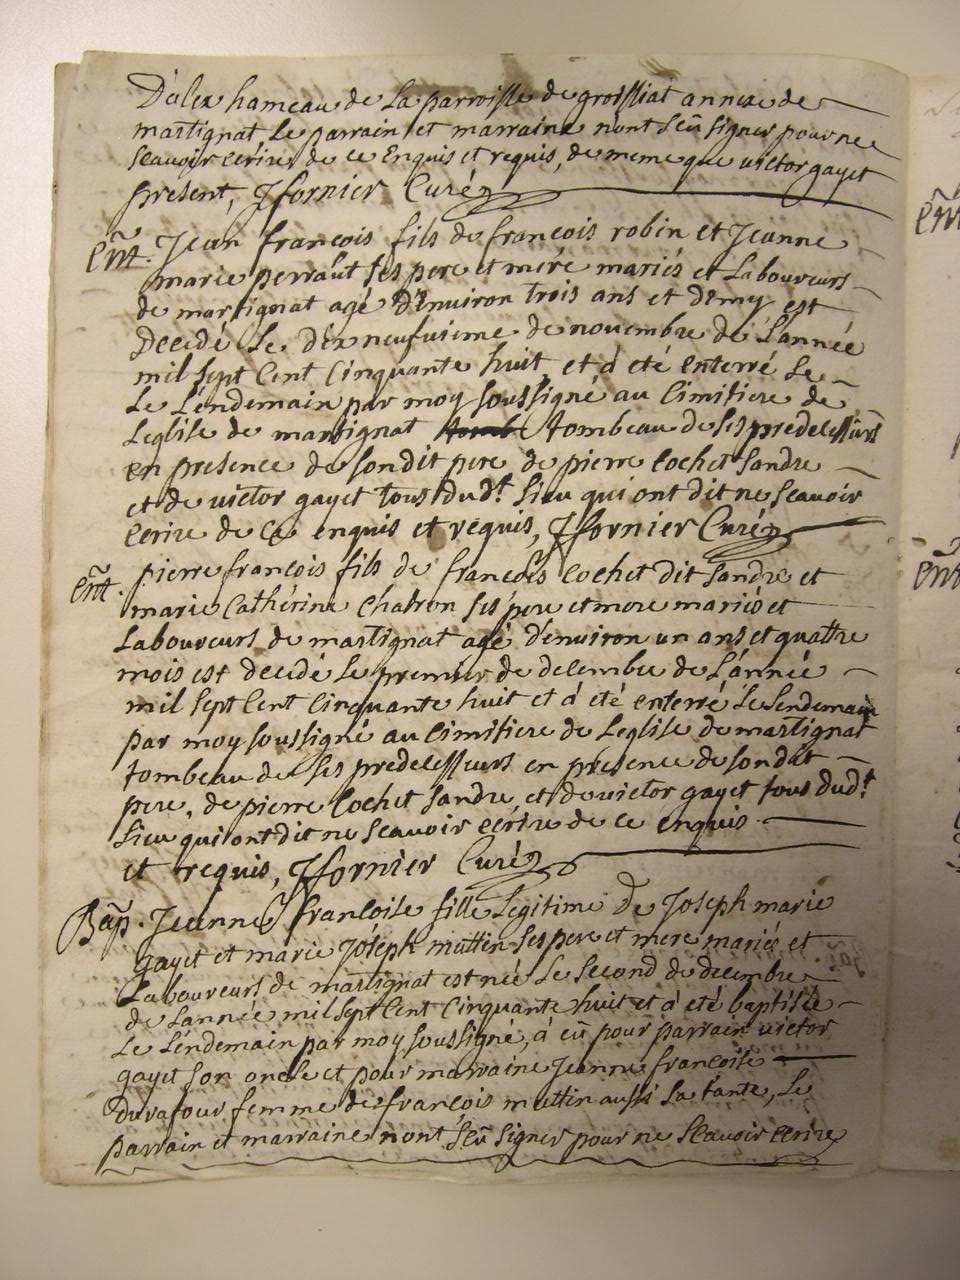 D'alex hameau de La parroisse de groissiat annexe de
martignat Le parrain et marraine n'ont sçu signer pour ne
sçauoir ecrire de ce Enquis et requis, de meme que victor gayet
present, Jfornier Curé
Ent. Jean francois fils de francois robin et Jeanne
marie perraut ses pere et mére mariés et Laboureurs
de martignat agé d'Enuiron trois ans et demy est
Decedé Le dixneufuieme de novembre de L'année
mil sept Cent Cinquante huit, et à été enterré Le
Le Lendemain par moy soussigné au Cimitiere de
Leglise de martignat tombeau de ses predecesseurs
en presence de sondit pere de pierre Cochet Sandre
et de victor gayet tous dud.t Lieu qui ont dit ne scauoir
ecrire de Ce enquis et requis, Jfornier Curé
Ent. pierre francois fils de francois Cochet dit Sandre et
marie Cathérine Chatron ses pere et mere mariés et
Laboureurs de martignat agé d'enuiron un ans et quattre
mois est decedé Le premier de decembre de L'année
mil sept Cent Cinquante huit et à été enterré Le Lendemain
par moy soussigné au Cimitiere de Leglise de martignat
tombeau de ses predecesseurs en presence de sondit
pere, de pierre Cochet Sandre, et de victor gayet tous dud.t
Lieu qui ont dit ne scauoir ecrire de ce enquis
et requis, Jfornier Curé
Bap. Jeanne francoise fille Legitime de Joseph marie
gayet et marie Jóseph muttin ses pere et mere mariés et
Laboureurs de martignat est née Le second de decembre
de L'année mil sept Cent Cinquante huit et à été baptisée
Le Lendemain par moy soussigné, à eü pour parrain victor
gayet son oncle et pour marraine Jeanne francoise
durafour femme de francois muttin aussi sa tante, Le
parrain et marraine n'ont sçu signer pour ne Scauoir ecrire
Ent
Ent